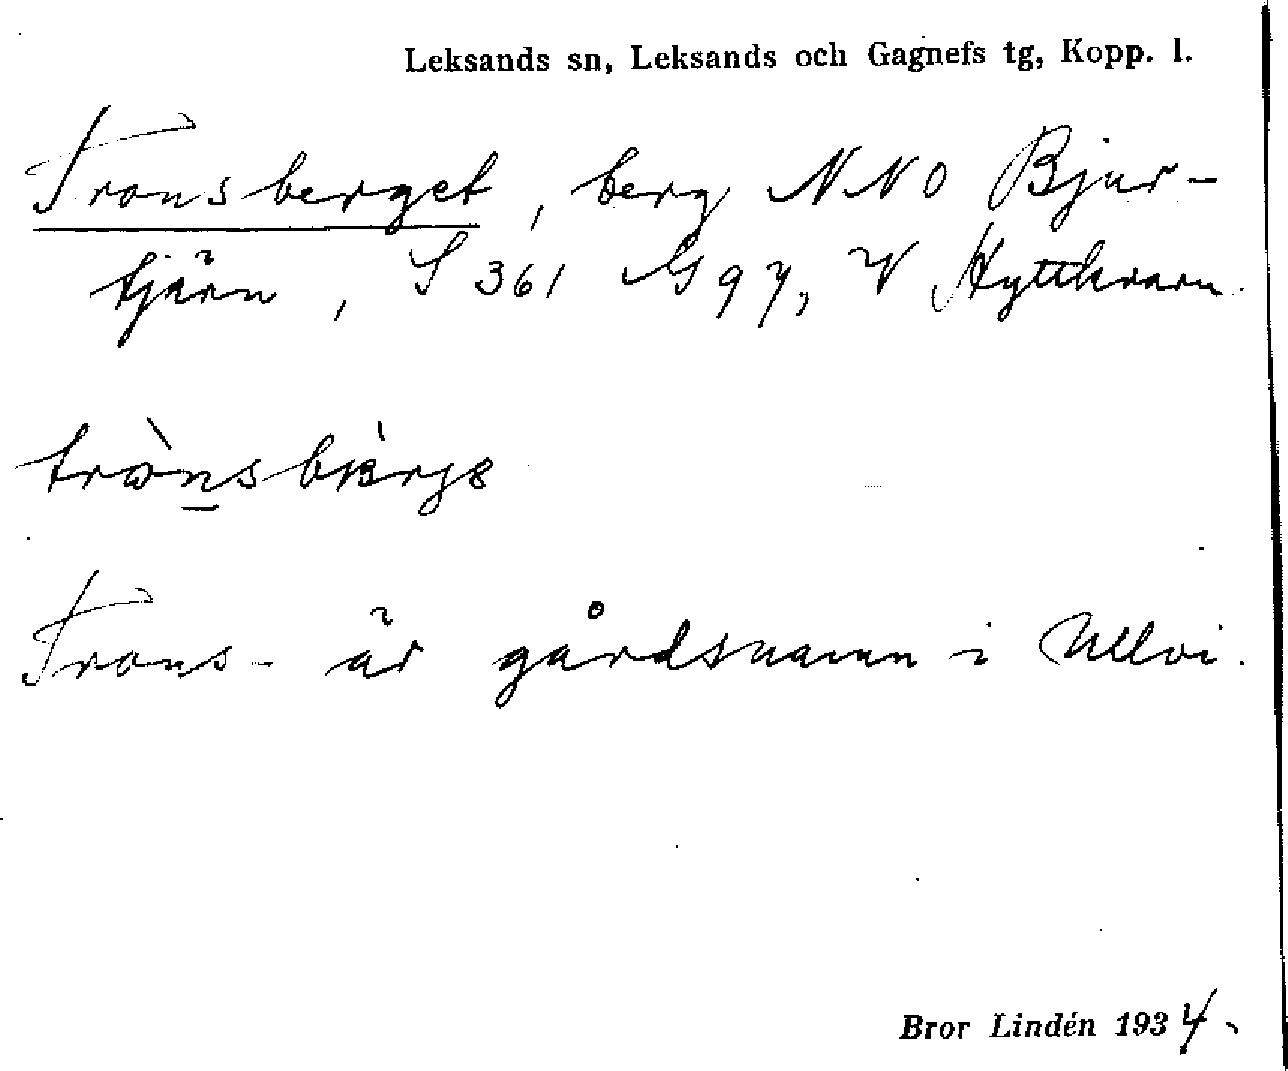 Leksands sn, Leksands och Gagnefs tg, Kopp. l.
Tronsberget, berg NNO Bjur-
tjärn, S 361 G 97, V Hyttkvarn.
Trons- är gårdsnamn i Ullvi.
Bror Lindén 1934.